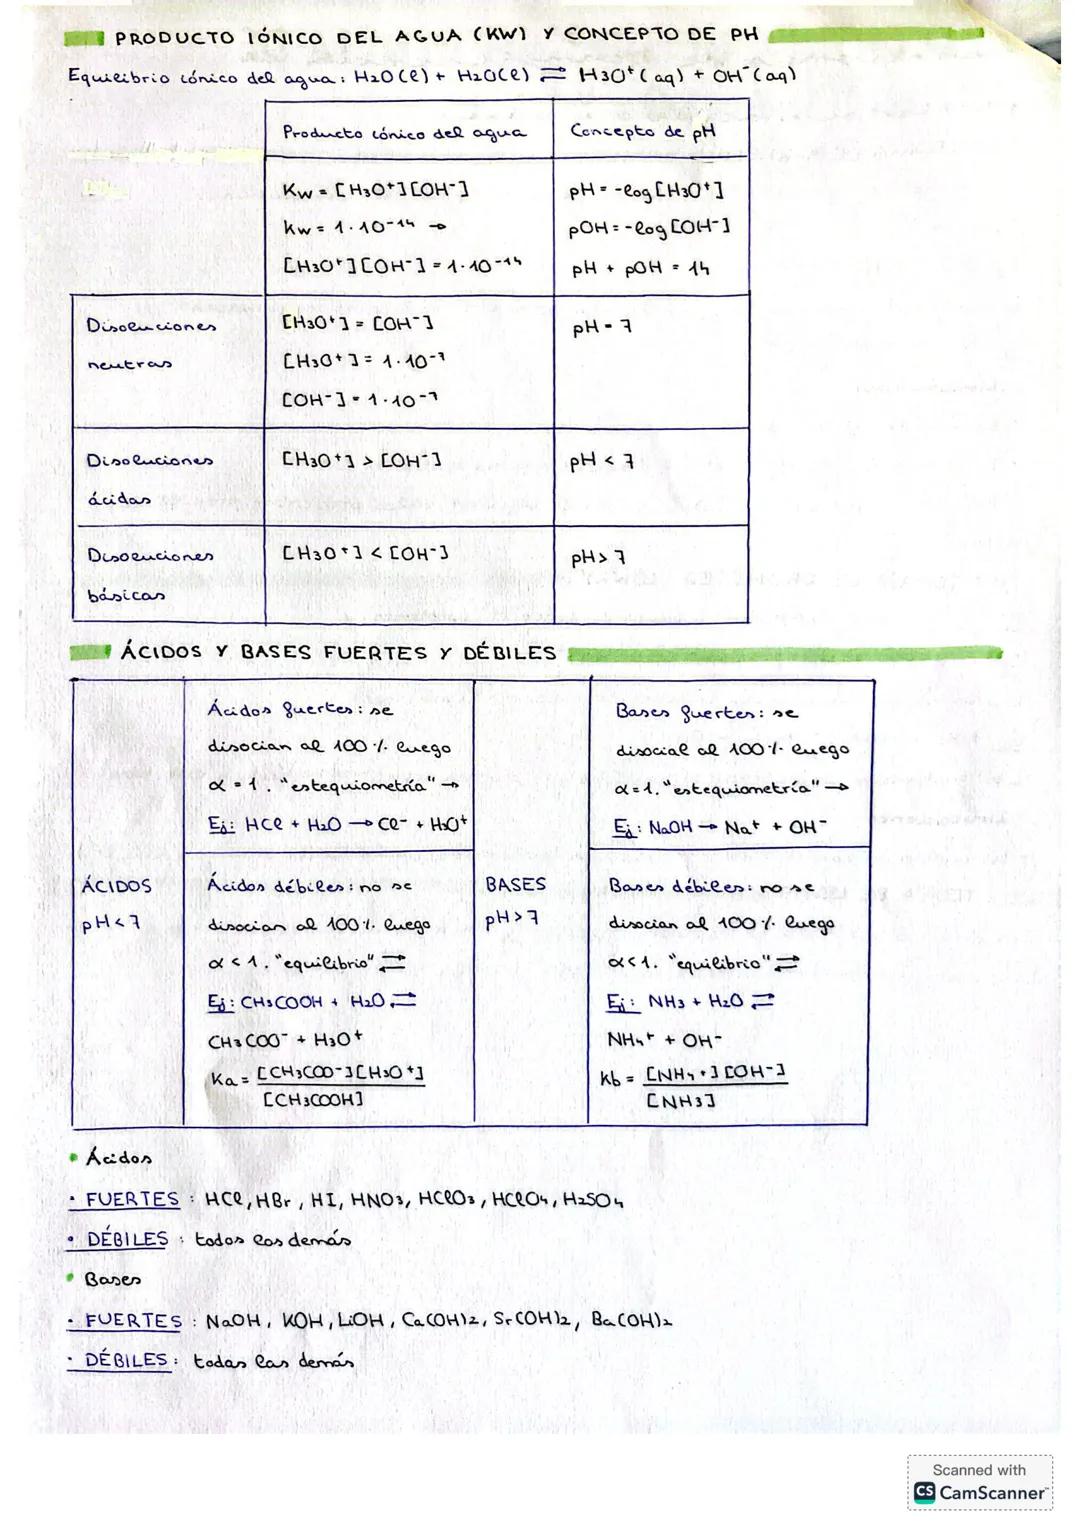 PRODUCTO IÓNICO DEL AGUA (KW) Y CONCEPTO DE PH
Equilibrio iónico del agua: H2O(l) + H2O(l) ⇄ H3O⁺(aq) + OH⁻(aq)
Producto iónico del agua
Concepto de pH
Kw = [H3O⁺][OH⁻]
Kw = 1·10⁻¹⁴ →
[H3O⁺][OH⁻] = 1·10⁻¹⁴
pH = -log[H3O⁺]
pOH = -log[OH⁻]
pH + pOH = 14
Disoluciones
neutras
[H3O⁺] = [OH⁻]
[H3O⁺] = 1·10⁻⁷
[OH⁻] = 1·10⁻⁷
pH = 7
Disoluciones
ácidas
[H3O⁺] > [OH⁻]
pH < 7
Disoluciones
básicas
[H3O⁺] < [OH⁻]
pH > 7
ÁCIDOS Y BASES FUERTES Y DÉBILES
ÁCIDOS
pH<7
Ácidos fuertes: se
disocian al 100% luego
α = 1. "estequiometría" →
Ej: HCl + H2O → Cl⁻ + H3O⁺
Ácidos débiles: no se
disocian al 100% luego
α < 1. "equilibrio" ⇄
Ej: CH3COOH + H2O ⇄
CH3COO⁻ + H3O⁺
Ka = [CH3COO⁻][H3O⁺]
[CH3COOH]
BASES
pH>7
Bases fuertes: se
disocial al 100% luego
α=1. "estequiometría" →
Ej: NaOH → Na⁺ + OH⁻
Bases débiles: no se
disocian al 100% luego
α<1. "equilibrio" ⇄
Ej: NH3 + H2O ⇄
NH4⁺ + OH⁻
Kb = [NH4⁺][OH⁻]
[NH3]
• Ácidos
· FUERTES: HCl, HBr, HI, HNO3, HClO3, HClO4, H2SO4
· DÉBILES: todos los demás
• Bases
· FUERTES: NaOH, KOH, LiOH, Ca(OH)2, Sr(OH)2, Ba(OH)2
· DÉBILES: todas las demás
Scanned with
CS CamScanner™